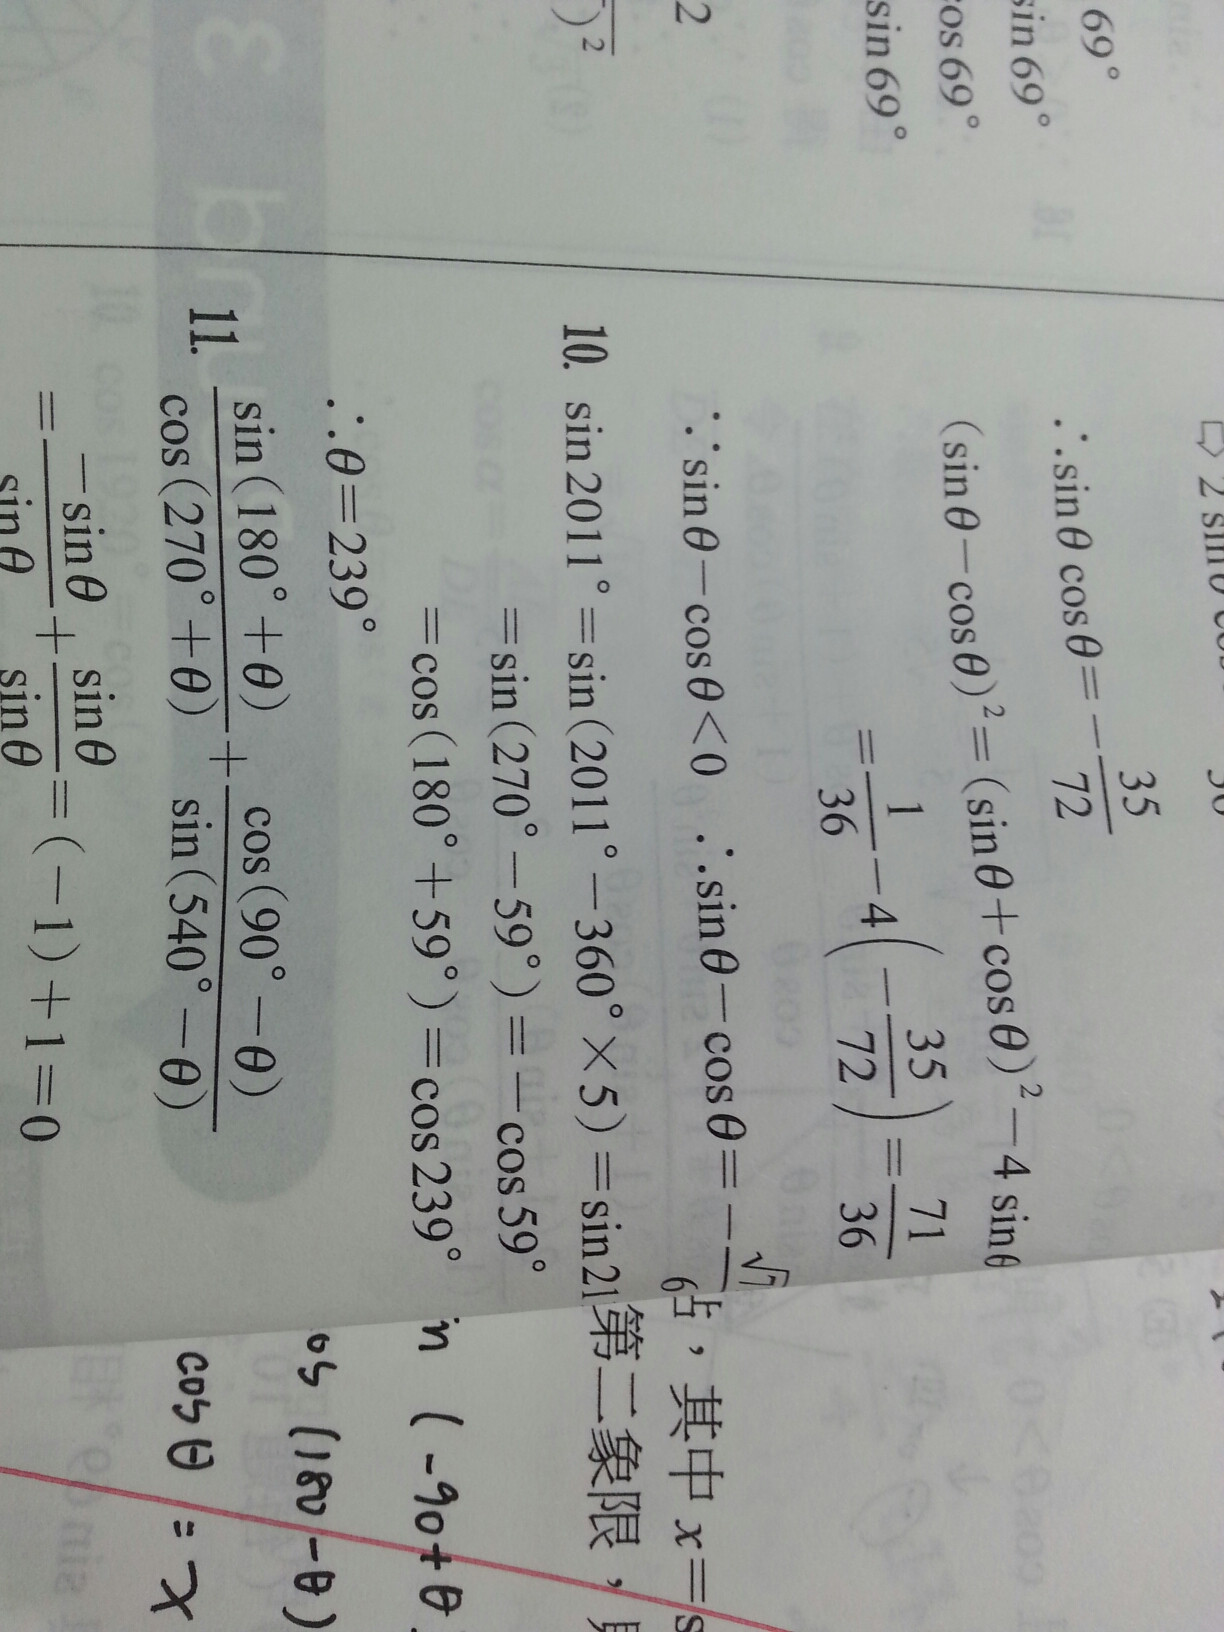 69°
sin69°
cos69°
sin69°
2
)²
∴sinθcosθ=−35/72
(sinθ−cosθ)²=(sinθ+cosθ)²−4sinθ
=1/36−4(−35/72)=71/36
∵sinθ−cosθ<0 ∴sinθ−cosθ=−
10. sin2011°=sin(2011°−360°×5)=sin21
=sin(270°−59°)=−cos59°
=cos(180°+59°)=cos239°
∴θ=239°
11. sin(180°+θ)/cos(270°+θ)+cos(90°−θ)/sin(540°−θ)
=−sinθ/sinθ+sinθ/sinθ=(−1)+1=0
,其中 x=s
第二象限,
(-90+θ
os (180-θ)
cosθ = x